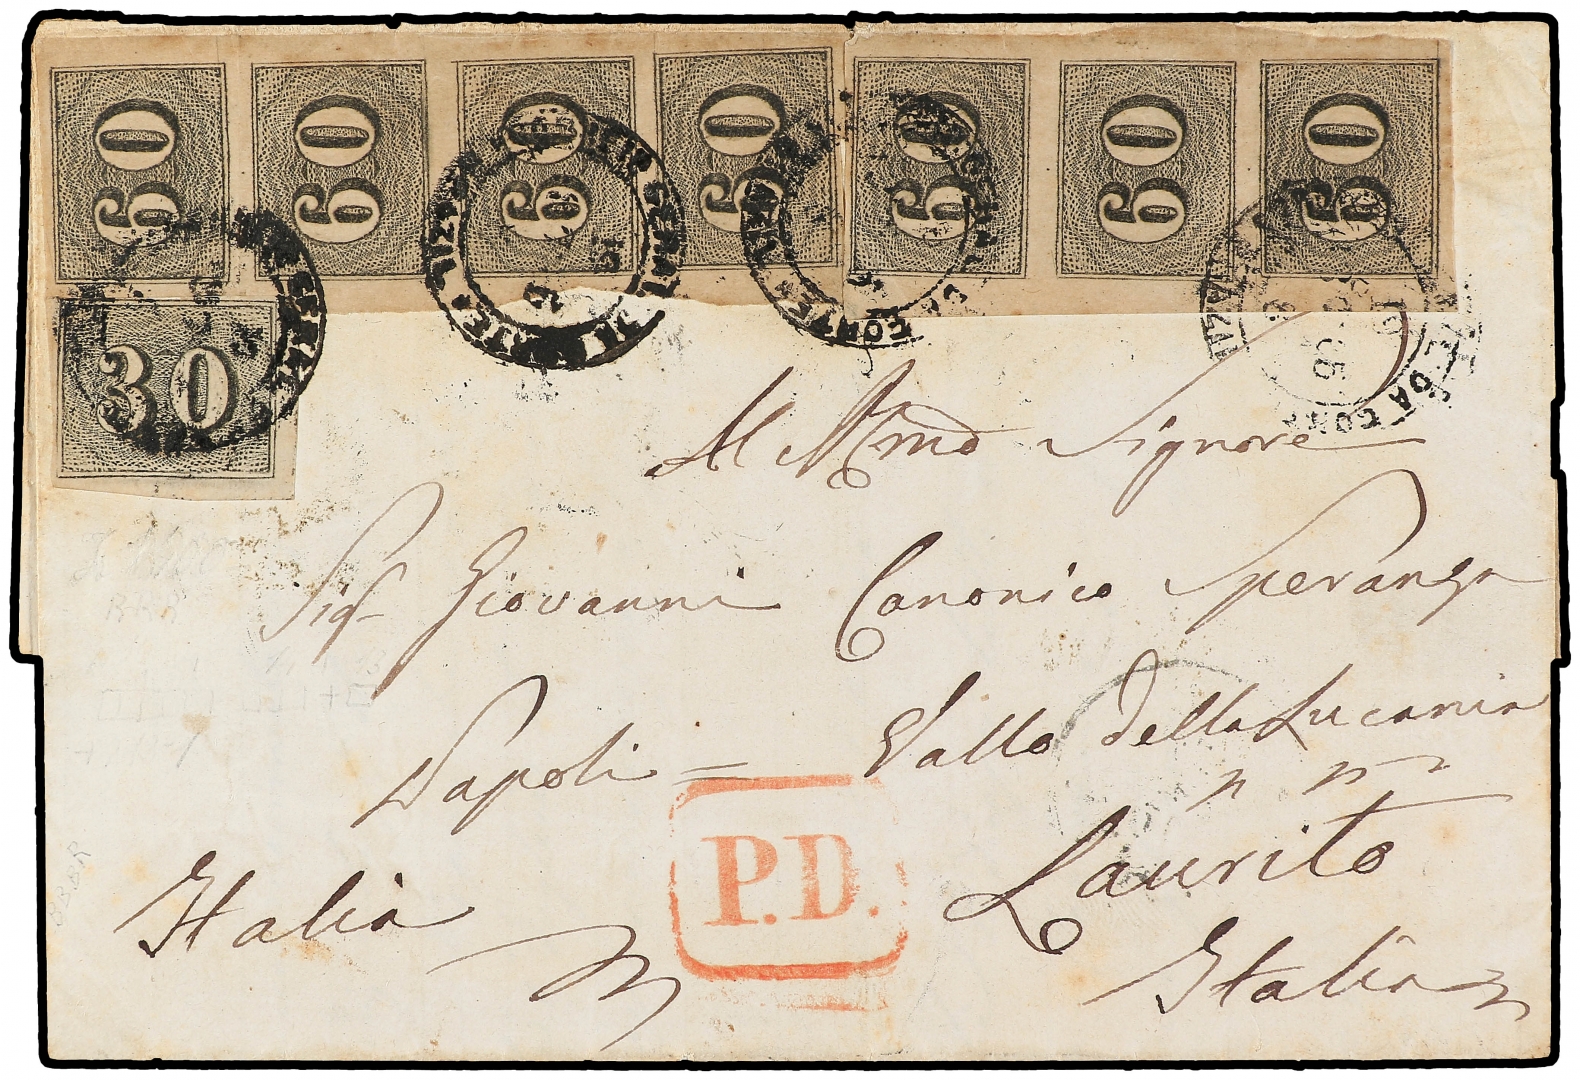 60 60 60 60 60 60 60
30
CORREIO GERAL DA CORTE
Al Rmo Signore
Sigr Giovanni Canonico Speranza
Napoli = Vallo della Lucania
Laurito
Italia
Italia
P.D.
RRR